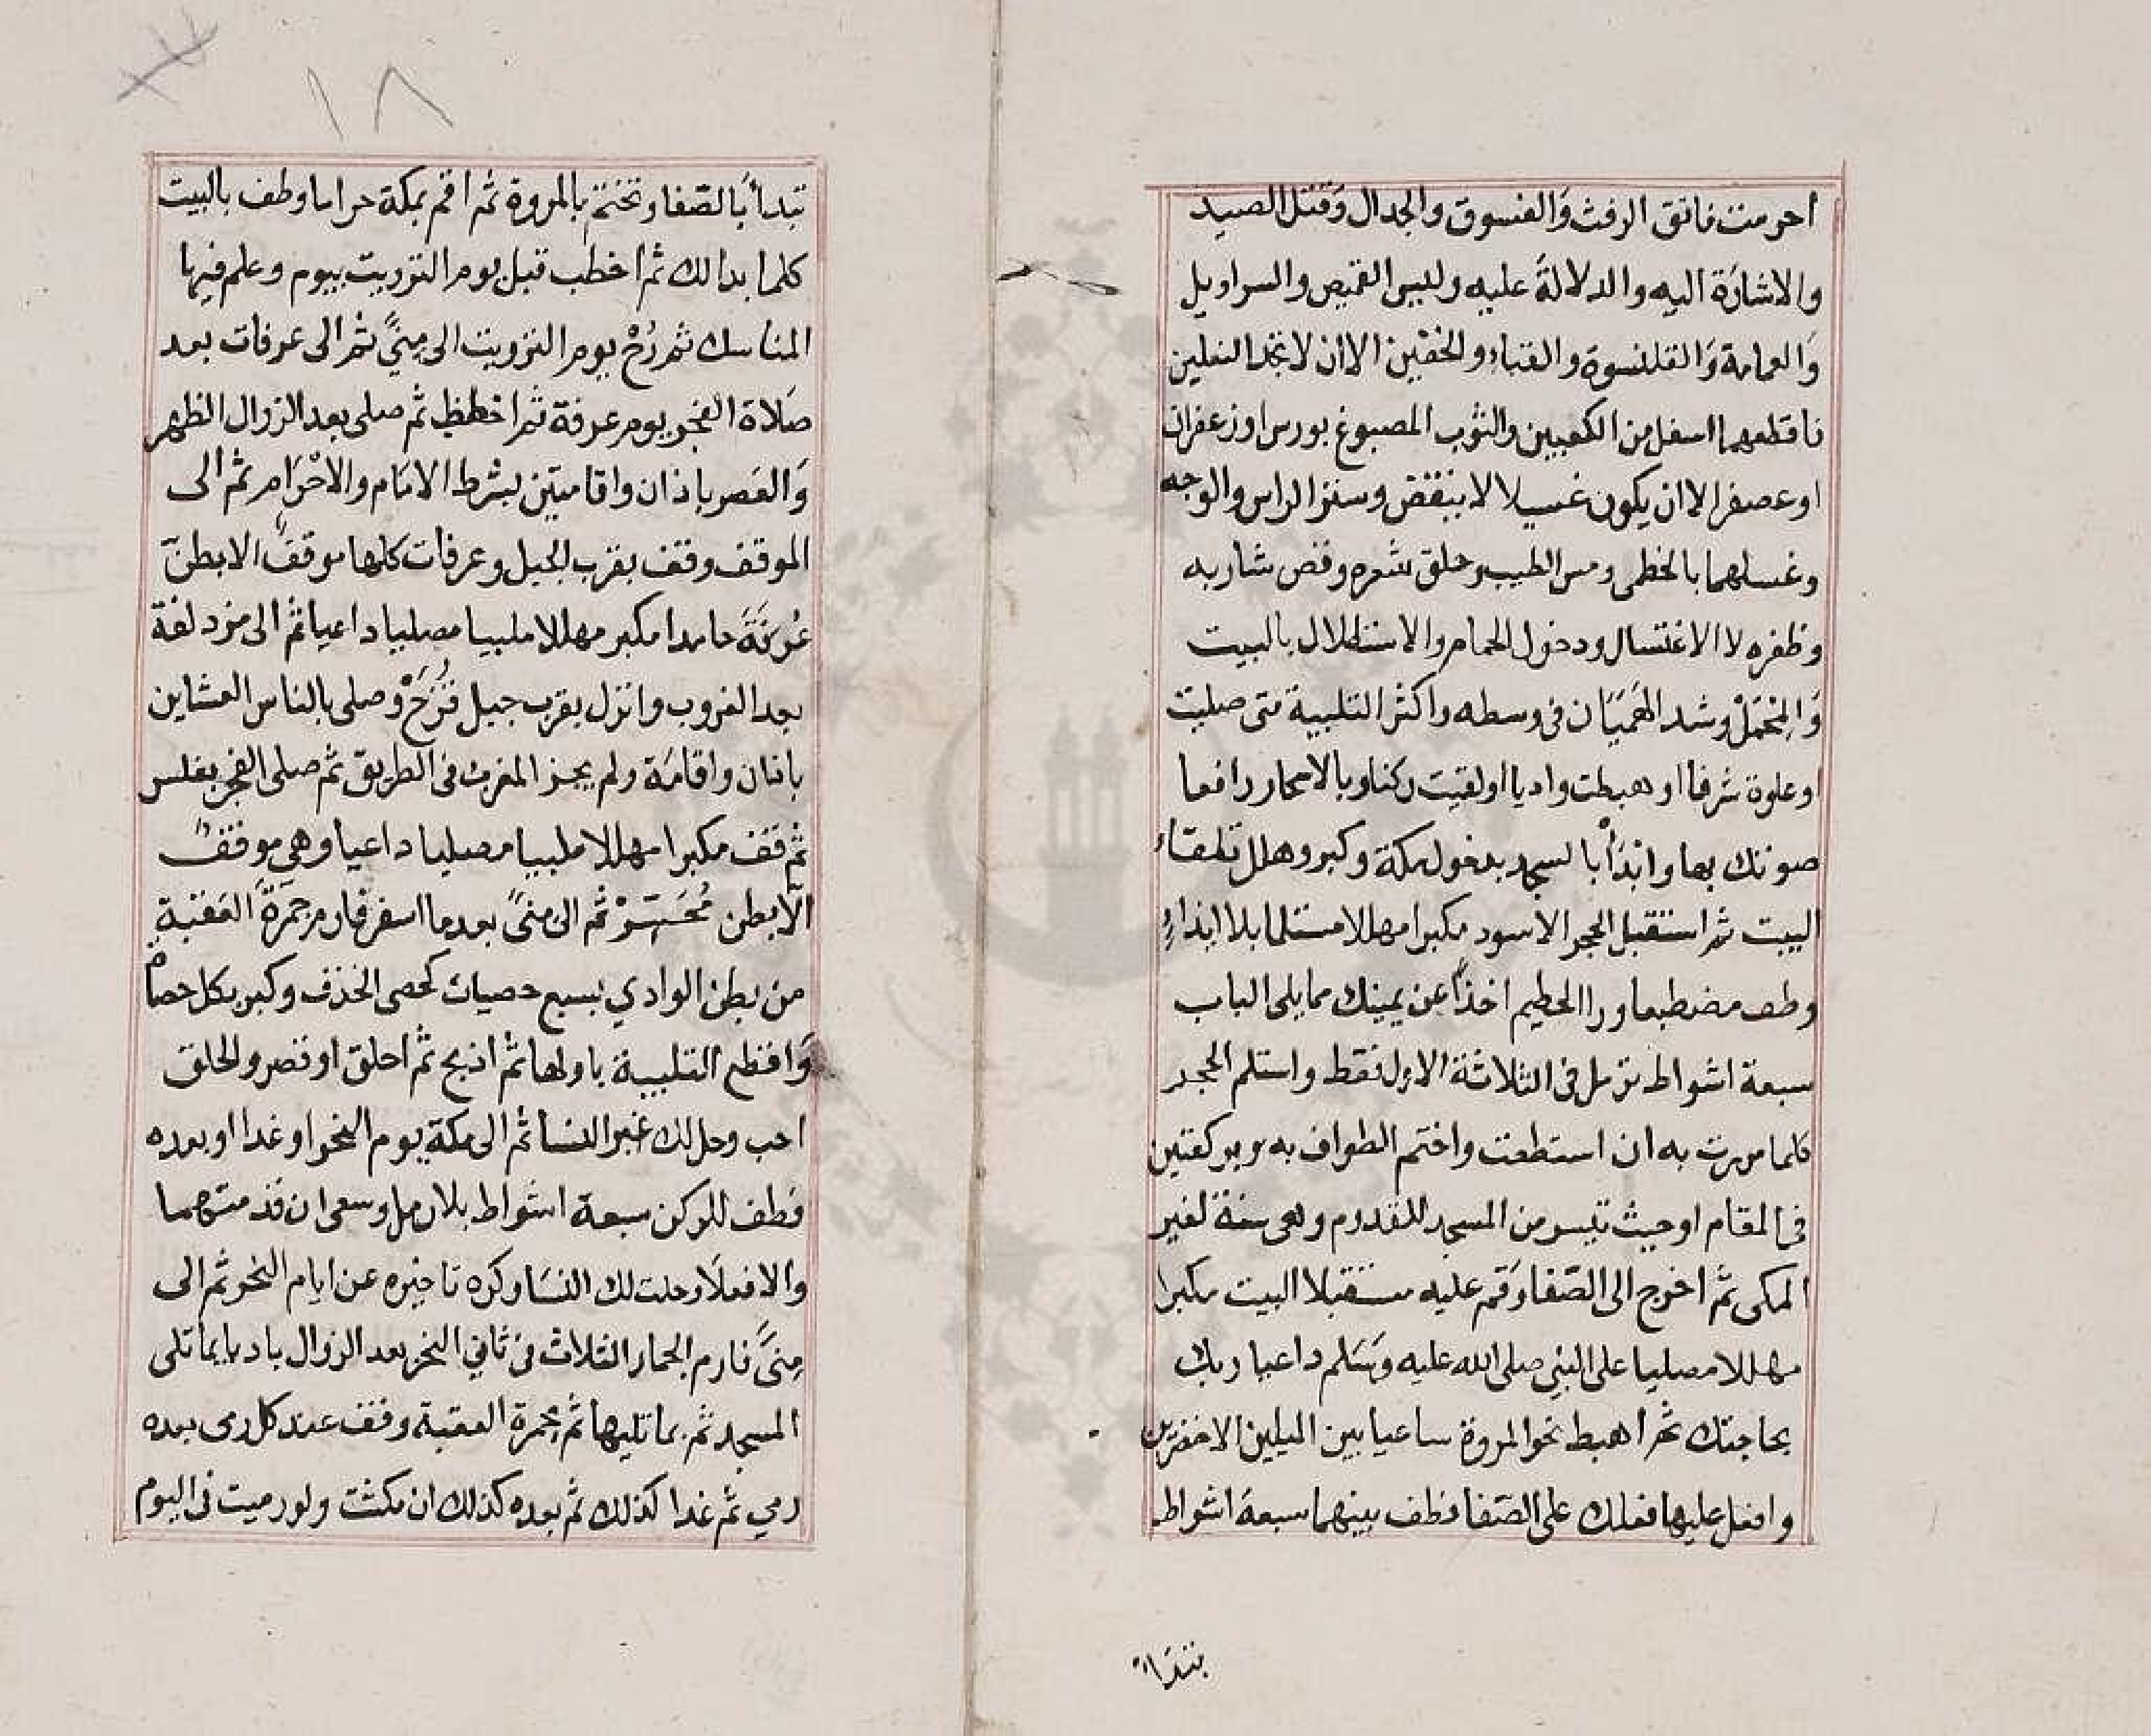 احرمت فاتق الرفث وَالفسوق والجدال وَقتل الصيد
والاشارَة اليه والدلالةَ عليه ولبس القميص والسراويل
وَالعمامة وَالقلنسوة والقباء والخفين الا ان لا تجد النعلين
فاقطعهما اسفل من الكعبين والثوب المصبوغ بورس او زعفران
او عصفر الا ان يكون غسيلا لا ينفض وستر الراس والوجه
وغسلهما بالخطمى ومس الطيب وحلق شعره وقص شاربه
وظفره لا الاغتسال ودخول الحمام والاستظلال بالبيت
وَالمِحْمَلْ وشد الهَميَان فى وسطه واكثر التلبية متى صليت
او علوة شرفا او هبطت واديا او لقيت ركبا وبالاسحار رافعا
صوتك بها وابدَأْ بالمسجد بدخول مكة وكبر وهلل تلقاء
البيت ثم استقبل الحجر الاسود مكبرا مهللا مستلما بلا ايذاءٍ
وطف مضطبعا ورا الحطيم اخذًا عن يمينك مما يلى الباب
سبعة اشواط ترمل فى الثلاثة الاول فقط واستلم الحجر
كلما مررت به ان استطعت واختم الطواف به وبركعتين
فى المقام او حيث تيسر من المسجد للقدوم وهى سنة لغير
المكى ثم اخرج الى الصّفا وَقم عليه مستقبلا البيت مكبرا
مهللا مصليا على النبى صلى الله عليه وسَلم داعيا ربك
بحاجتك ثم اهبط نحو المروة ساعيا بين الميلين الاخضرين
وافعل عليها فعلك على الصّفا فطف بينهما سبعة اشواط
تبدَاء
١٨
تبدأ بَالصّفا وتختم بالمروة ثم اقم بمكة حراما وطف بالبيت
كلما بدا لك ثم اخطب قبل يوم التروية بيوم وعلم فيها
المناسك ثم رُحْ يوم التروية الى مِنًي ثم الى عرفات بعد
صَلاة الفجر يوم عرفة ثم اخطب ثم صلى بعد الزوال الظهر
وَالعَصر باذان واقامتين بشرط الامَام والاحْرَام ثم الى
الموقف وقف بقرب الجبل وعرفات كلها موقفٌ الا بطنَ
عُرَنَةَ حامدا مكبر مهللا ملبيا مصليا داعيا ثم الى مزدلفة
بعد الغروب وانزل بقرب جبل قُزَحَْ وصلى بالناس العشاين
باذان واقامَة ولم يجز المغرب فى الطريق ثم صلى الفجر بغلس
ثم قف مكبرا مهللا ملبيا مصليا داعيا وهى موقفٌ
الا بطن مُحَسّرْ ثم الى منىً بعدما اسفر فارم جمرَةَ العَقبة
من بطن الوادي بسبع حصيات كحصى الخذف وكبر بكل حصاة
وَاقطع التلبية باولها ثم اذبح ثم احلق او قصر والحلق
احب وحل لك غير النسا ثم الى مكة يوم النحر او غدا او بعده
فطف للركن سبعة اشواط بلا رمل وسعى ان قدمتهما
والا فعلَا وحلت لك النسَا وكره تاخيره عن ايام النحر ثم الى
مِنىً فارم الجمار الثلاث فى ثاني النحر بعد الزوال باديا بما تلى
المسجد ثم بما تليها ثم بجمرة العقبة وقف عند كل رمى بعده
رمي ثم غدا كذلك ثم بعده كذلك ان مكثت ولو رميت فى اليوم